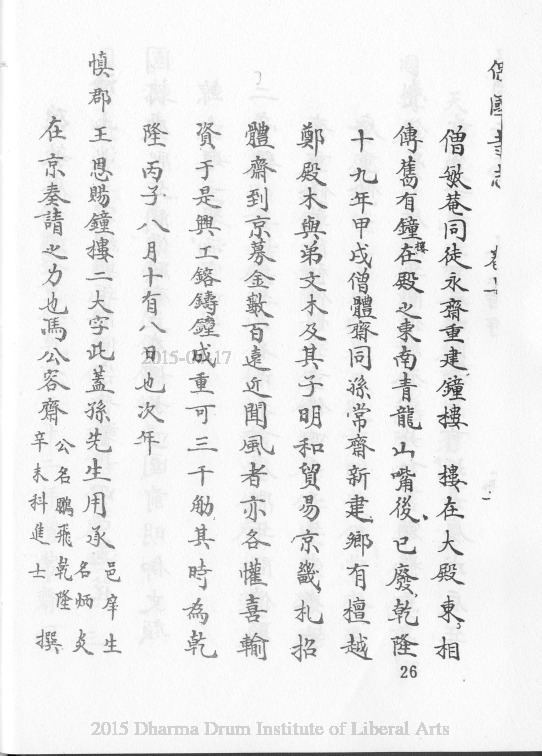 僧敏菴同徒永齋重建鐘樓　樓在大殿東相
傳舊有鐘樓在殿之東南青龍山嘴後已廢乾隆
十九年甲戌僧體齋同孫常齋新建鄉有檀越
鄭殿木與弟文木及其子明和貿易京畿札招
體齋到京募金數百遠近聞風者亦各懽喜輸
資于是興工鎔鑄鐘成重可三千觔其時為乾
隆丙子八月十有八日也次年
慎郡王恩賜鐘樓二大字此蓋孫先生用承 邑庠生名炳炎
在京奏請之力也馮公容齋 公名鵬飛乾隆辛未科進士 撰
26
2015 Dharma Drum Institute of Liberal Arts